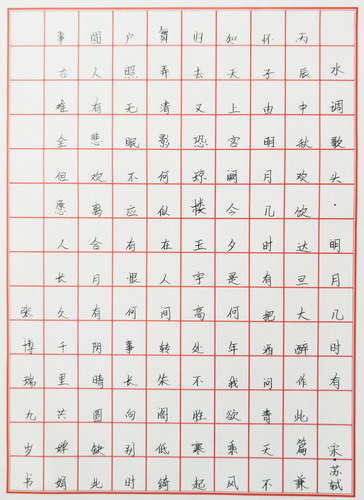 水调歌头·明月几时有宋·苏轼
丙辰中秋欢饮达旦大醉作此篇兼
怀子由明月几时有把酒问青天不
知天上宫阙今夕是何年我欲乘风
归去又恐琼楼玉宇高处不胜寒起
舞弄清影何似在人间转朱阁低绮
户照无眠不应有恨何事长向别时
圆人有悲欢离合月有阴晴圆缺此
事古难全但愿人长久千里共婵娟
张博瑞九岁书